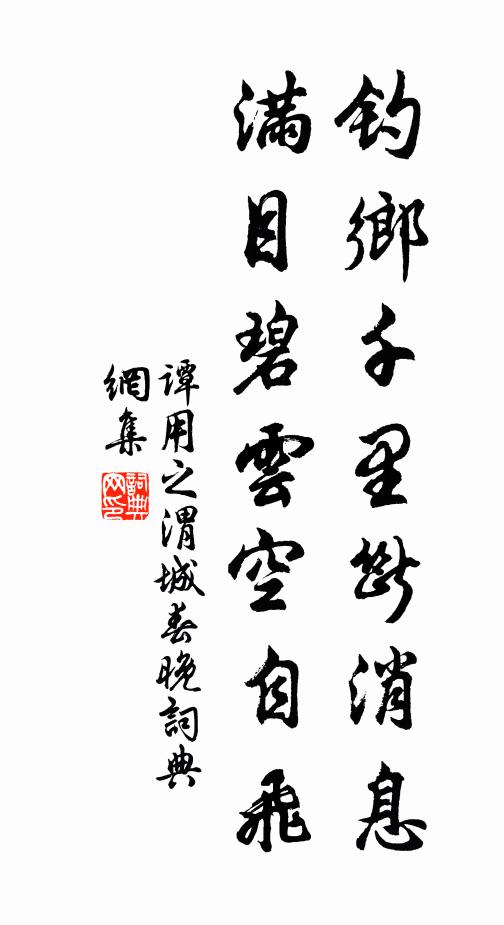 钓鄉千里斷消息
滿目碧雲空自飛
譚用之渭城春晚詞典
網集
詞典
网印